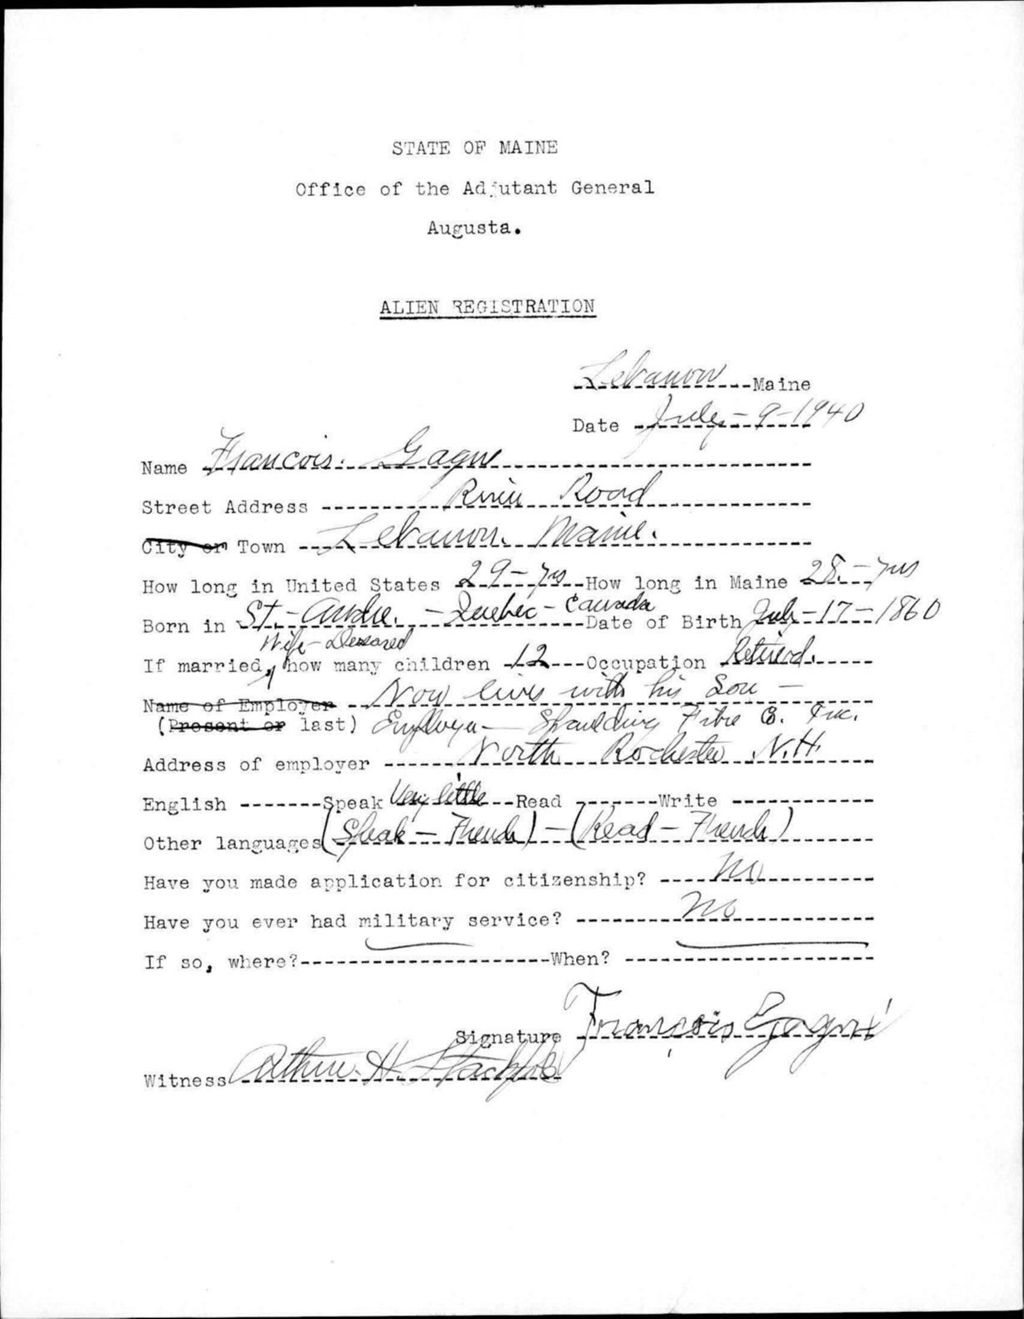 STATE OF MAINE
Office of the Adjutant General
Augusta.
ALIEN REGISTRATION
Lebanon Maine
Date July-9-1940
Name Francois. Gagne
Street Address River Road
City or Town Lebanon. Maine.
How long in United States 29-yrs How long in Maine 28.-yrs
Born in St.-Andre.-Quebec-Canada Date of Birth July-17-1860
Wife-Deceased
If married, how many children 12 Occupation Retired.
Name of Employer Now lives with his Son-
(Present or last) Employer- Spaulding Fibre Co. Inc.
Address of employer North Rochester N.H.
English Speak Very little Read Write
Other languages (Speak-French)-(Read-French)
Have you made application for citizenship? No
Have you ever had military service? No
If so, where? When?
Signature Francois Gagné
Witness Arthur. H.